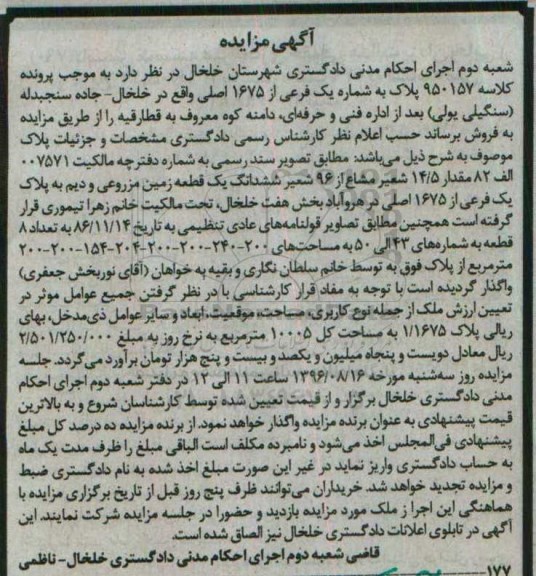 آگهی مزایده
شعبه دوم اجرای احکام مدنی دادگستری شهرستان خلخال در نظر دارد به موجب پرونده
کلاسه ۹۵۰۱۵۷ پلاک به شماره یک فرعی از ۱۶۷۵ اصلی واقع در خلخال- جاده سنجبدله
(سنگیلی یولی) بعد از اداره فنی و حرفه‌ای، دامنه کوه معروف به قطارقیه را از طریق مزایده
به فروش برساند حسب اعلام نظر کارشناس رسمی دادگستری مشخصات و جزئیات پلاک
موصوف به شرح ذیل می‌باشد: مطابق تصویر سند رسمی به شماره دفترچه مالکیت ۰۰۷۵۷۱
الف ۸۲ مقدار ۱۴/۵ شعیر مشاع از ۹۶ شعیر ششدانگ یک قطعه زمین مزروعی و دیم به پلاک
یک فرعی از ۱۶۷۵ اصلی در هروآباد بخش هفت خلخال، تحت مالکیت خانم زهرا تیموری قرار
گرفته است همچنین مطابق تصاویر قولنامه‌های عادی تنظیمی به تاریخ ۸۶/۱۱/۱۴ به تعداد ۸
قطعه به شماره‌های ۴۳ الی ۵۰ به مساحت‌های ۲۰۰-۲۴۰-۲۰۰-۲۰۴-۲۰۰-۱۵۴-۲۰۰-۲۰۰
مترمربع از پلاک فوق به توسط خانم سلطان نگاری و بقیه به خواهان (آقای نوربخش جعفری)
واگذار گردیده است با توجه به مفاد قرار کارشناسی با در نظر گرفتن جمیع عوامل موثر در
تعیین ارزش ملک از جمله نوع کاربری، مساحت، موقعیت، ابعاد و سایر عوامل ذی‌مدخل، بهای
ریالی پلاک ۱/۱۶۷۵ به مساحت کل ۱۰۰۰۵ مترمربع به نرخ روز به مبلغ ۲/۵۰۱/۲۵۰/۰۰۰
ریال معادل دویست و پنجاه میلیون و یکصد و بیست و پنج هزار تومان برآورد می‌گردد. جلسه
مزایده روز سه‌شنبه مورخه ۱۳۹۶/۰۸/۱۶ ساعت ۱۱ الی ۱۲ در دفتر شعبه دوم اجرای احکام
مدنی دادگستری خلخال برگزار و از قیمت تعیین شده توسط کارشناسان شروع و به بالاترین
قیمت پیشنهادی به عنوان برنده مزایده واگذار خواهد نمود. از برنده مزایده ده درصد کل مبلغ
پیشنهادی فی‌المجلس اخذ می‌شود و نامبرده مکلف است الباقی مبلغ را ظرف مدت یک ماه
به حساب دادگستری واریز نماید در غیر این صورت مبلغ اخذ شده به نام دادگستری ضبط
و مزایده تجدید خواهد شد. خریداران می‌توانند ظرف پنج روز قبل از تاریخ برگزاری مزایده با
هماهنگی این اجرا ز ملک مورد مزایده بازدید و حضورا در جلسه مزایده شرکت نمایند. این
آگهی در تابلوی اعلانات دادگستری خلخال نیز الصاق شده است.
قاضی شعبه دوم اجرای احکام مدنی دادگستری خلخال- ناظمی
۱۷۷